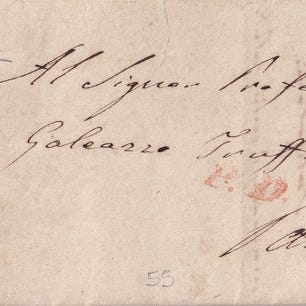 Al Signor Profe
Galeazzo Truff
P. D.
Pa
55